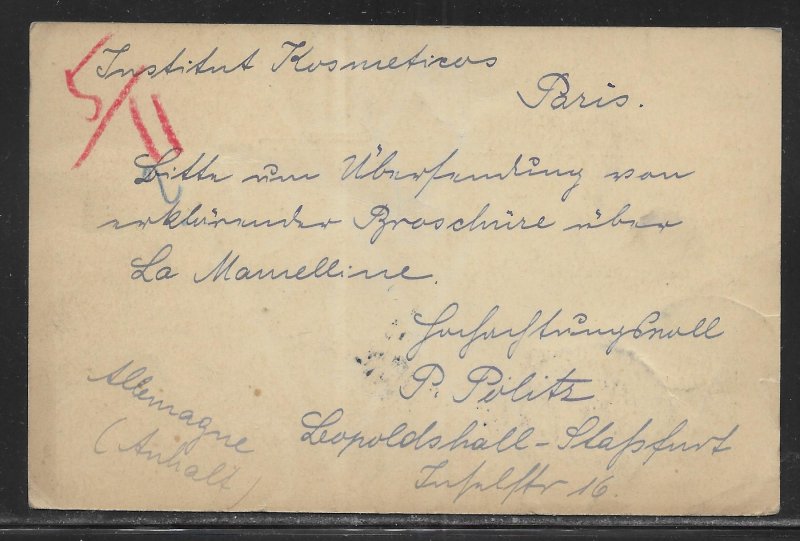 Institut Kosmeticos
Paris.
5/11
Bitte um Übersendung von
erklärender Broschüre über
La Mamelline.
Hochachtungsvoll
P. Pölitz
Leopoldshall-Staßfurt
Inselstr 16.
Allemagne
(Anhalt)